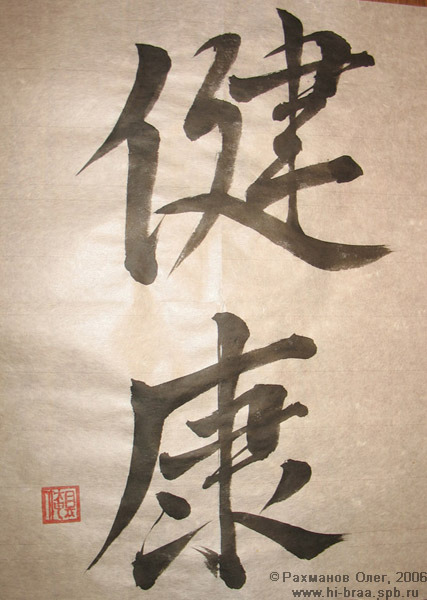 健
康
© Рахманов Олег, 2006
www.hi-braa.spb.ru